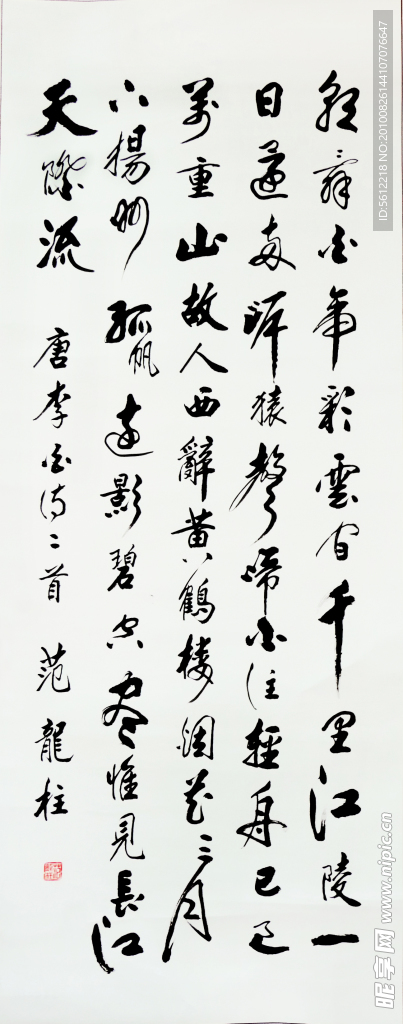 朝辞白帝彩雲间千里江陵一
日還两岸猿聲啼不住輕舟已过
萬重山故人西辭黄鶴楼烟花三月
下揚州孤帆遠影碧空尽惟見長江
天際流 唐李白诗二首 范龍柱
ID:5612218 NO:20100826144107076647
昵享网 www.nipic.cn